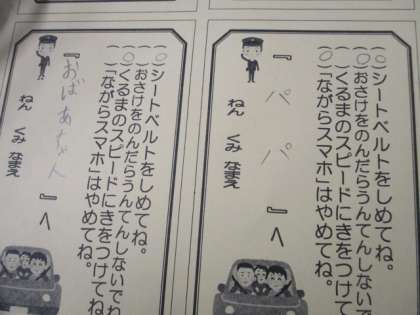 (○)シートベルトをしめてね。
( )おさけをのんだらうんてんしないで
( )くるまのスピードにきをつけて
(○)「ながらスマホ」はやめてね。
『パパ』へ
ねん くみ なまえ
(○)シートベルトをしめてね。
( )おさけをのんだらうんてんしないでね
(○)くるまのスピードにきをつけてね
( )「ながらスマホ」はやめてね。
『おばあちゃん』へ
ねん くみ なまえ